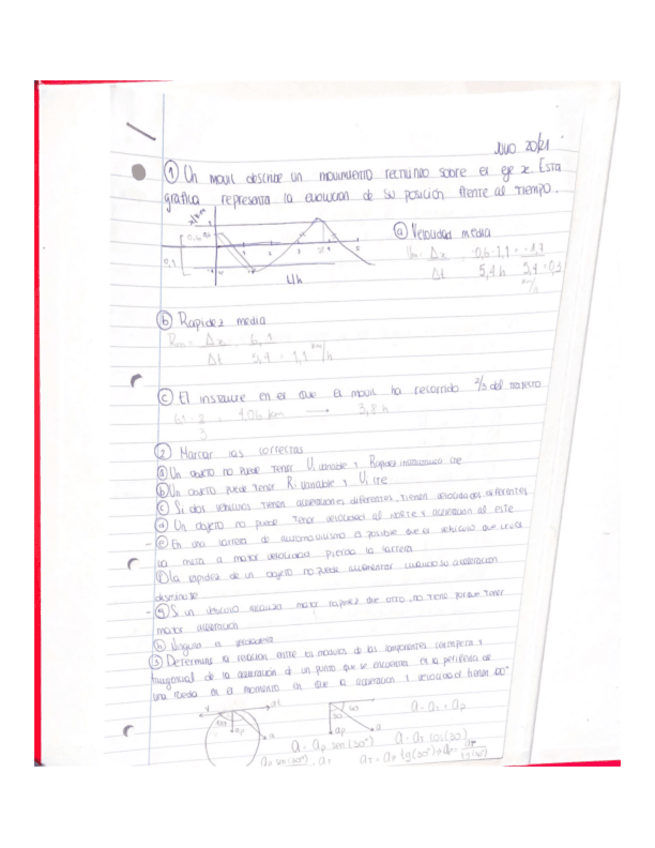 Julio 20/21
① Un movil describe un movimiento rectilineo sobre el eje x. Esta
grafica representa la evolucion de su posicion frente al tiempo.
x/km
0,6
0,1
t/h
ⓐ Velocidad media
Vm = Δx -0,6-1,1 = -1,7
Δt 5,4 h 5,4
km/h
ⓑ Rapidez media
Rm = Δx 6,1
Δt 5,4 = 1,1 km/h
ⓒ El instante en el que el movil ha recorrido 2/3 del trayecto
6,1·2 = 4,06 km → 3,8 h
3
② Marcar las correctas
ⓐ Un objeto no puede tener V. variable y Rapidez instantanea cte
ⓑ Un objeto puede tener Ri variable y Vi cte
ⓒ Si dos vehiculos tienen aceleraciones diferentes, tienen velocidades diferentes
ⓓ Un objeto no puede tener velocidad al norte y aceleracion al este
- ⓔ En una carrera de automovilismo es posible que el vehiculo que cruza
la meta a mayor velocidad pierda la carrera
ⓕ La rapidez de un objeto no puede aumentar cuando su aceleracion
disminuye
- ⓖ Si un vehiculo alcanza mayor rapidez que otro, no tiene porque tener
mayor aceleracion
ⓗ Ninguna es verdadera
③ Determina la relacion entre los modulos de las componentes centripeta y
tangencial de la aceleracion de un punto que se encuentra en la periferia de
una rueda en el momento en que la aceleracion y velocidad tienen
a = at + ap
a = ap sen(30°) a = at cos(30)
ap sen(30°) = at aT = ap tg(30°)